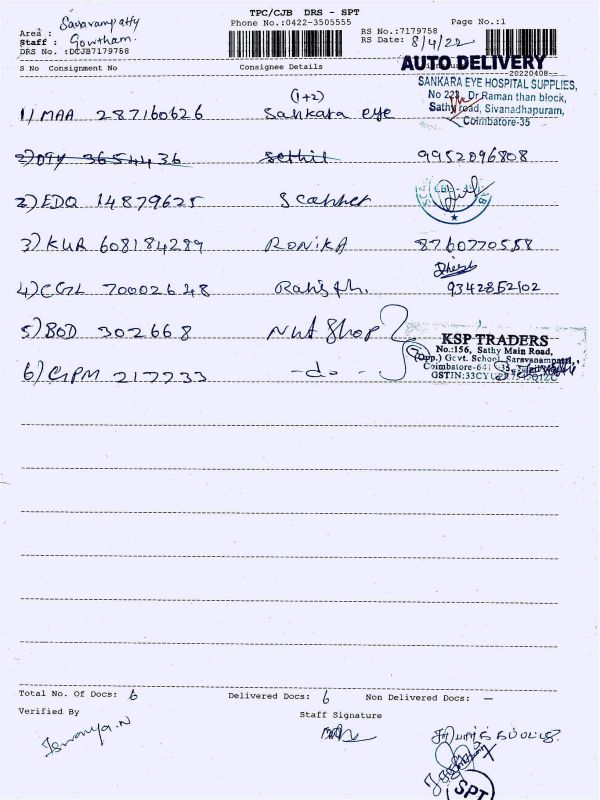 TPC/CJB DRS - SPT
Area : Saravampatty
Phone No.:0422-3505555
Page No.:1
Staff : Gowtham.
RS No.:7179758
DRS No. :DCJB7179758
RS Date: 8/4/22
AUTO DELIVERY
S No Consignment No
Consignee Details
20220408
SANKARA EYE HOSPITAL SUPPLIES,
No 223, Dr.Raman than block,
Sathy road, Sivanadhapuram,
Coimbatore-35
(1+2)
1) MAA 287160626 Sankara eye
3654436 9952096808
2) EDQ 14879625 Scanner
3) KUR 608184289 RONIKA 8760770558
4) CGL 70002648 9342852102
5) BOD 302668 Nut Shop
KSP TRADERS
No.:156, Sathy Main Road,
(Opp.) Govt. School, Saravanampatti,
Coimbatore-641
GSTIN:33CY
6) GPM 217233 -do-
Total No. Of Docs: 6 Delivered Docs: 6 Non Delivered Docs: -
Verified By
Staff Signature
SPT